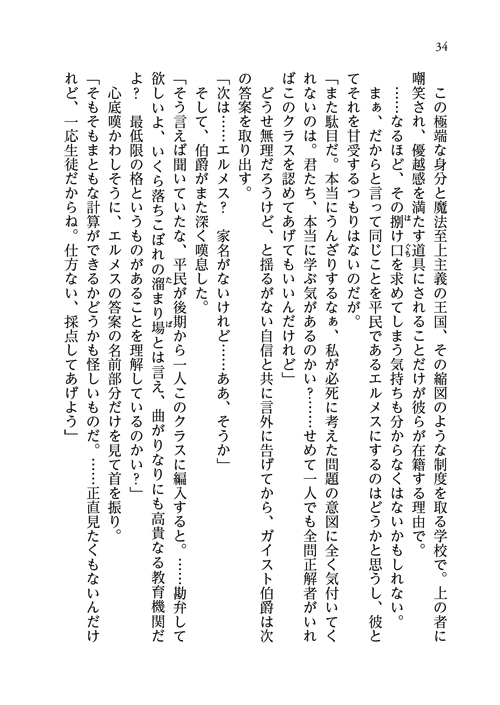 34
この極端な身分と魔法至上主義の王国、その縮図のような制度を取る学校で。上の者に
嘲笑され、優越感を満たす道具にされることだけが彼らが在籍する理由で。
……なるほど、その捌け口を求めてしまう気持ちも分からなくはないかもしれない。
まぁ、だからと言って同じことを平民であるエルメスにするのはどうかと思うし、彼と
てそれを甘受するつもりはないのだが。
「また駄目だ。本当にうんざりするなぁ、私が必死に考えた問題の意図に全く気付いてく
れないのは。君たち、本当に学ぶ気があるのかい？……せめて一人でも全問正解者がいれ
ばこのクラスを認めてあげてもいいんだけれど」
どうせ無理だろうけど、と揺るがない自信と共に言外に告げてから、ガイスト伯爵は次
の答案を取り出す。
「次は……エルメス？　家名がないけれど……ああ、そうか」
そして、伯爵がまた深く嘆息した。
「そう言えば聞いていたな、平民が後期から一人このクラスに編入すると。……勘弁して
欲しいよ、いくら落ちこぼれの溜まり場とは言え、曲がりなりにも高貴なる教育機関だ
よ？　最低限の格というものがあることを理解しているのかい？」
心底嘆かわしそうに、エルメスの答案の名前部分だけを見て首を振り。
「そもそもまともな計算ができるかどうかも怪しいものだ。……正直見たくもないんだけ
れど、一応生徒だからね。仕方ない、採点してあげよう」